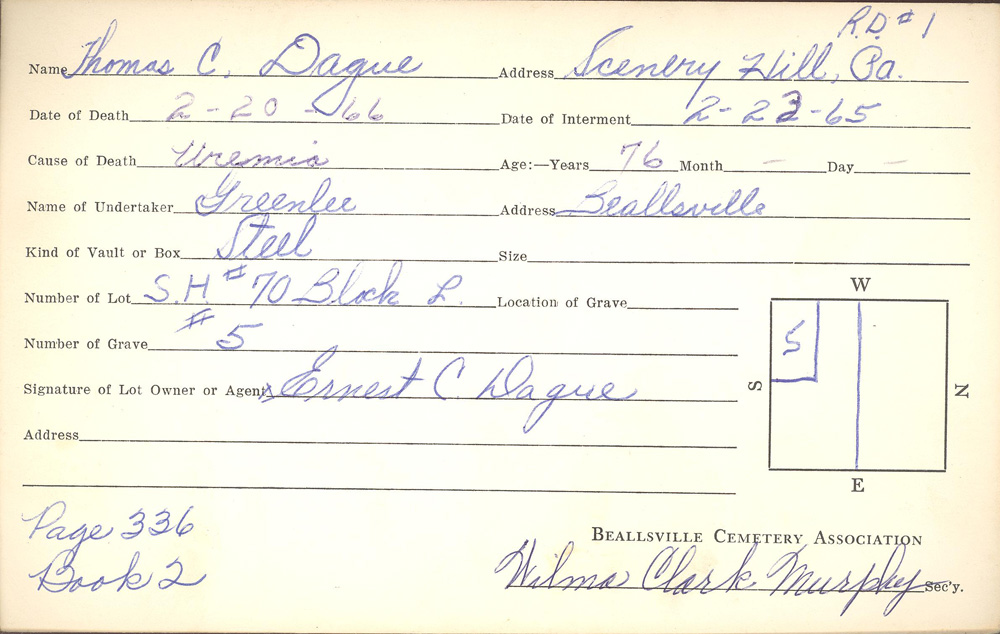 R.D. #1
Name Thomas C. Dague Address Scenery Hill, Pa.
Date of Death 2-20-66 Date of Interment 2-23-65
Cause of Death Uremia Age:—Years 76 Month - Day -
Name of Undertaker Greenlee Address Beallsville
Kind of Vault or Box Steel Size
Number of Lot S.H. #70 Block L. Location of Grave
Number of Grave #5
Signature of Lot Owner or Agent x Ernest C. Dague
Address
W
S 5 N
E
Page 336
Book 2
BEALLSVILLE CEMETERY ASSOCIATION
Wilma Clark Murphy Sec'y.